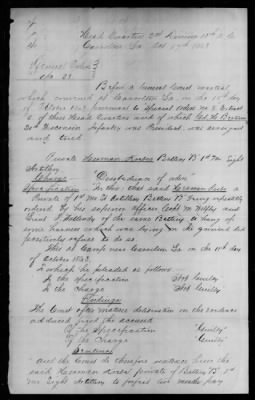 Head Quarters 2nd Division 13th A.C.
Carrollton La. Oct 17th 1863
General Orders
No 23
Before a General Court martial
which convened at Carrollton La. on the 15th day
of October 1863 pursuant to Special Orders No
of these Head Quarters and of which Col.
20th Wisconsin Infantry was President, was arraigned
and tried
Private Herman Battery "B" 1st Mo Light
Artillery
Charge "Disobedience of orders"
Specification In this, that said Herman
Private of 1st Mo Lt Artillery Battery "B" being repeatedly
ordered by his superior officer Capt M Welfley and
Lieut of the same Battery to hang up
some harness which was lying on the ground did
positively refuse to do so.
This at Camp near Carrollton La on the 11th day
of October 1863.
To which he pleaded as follows
To the Specification Not Guilty
To the Charge Not Guilty
Findings
The Court after mature deliberation on the evidence
adduced find the accused
Of the Specification "Guilty"
Of the Charge "Guilty"
Sentence
And the Court do therefore sentence him the
said Herman private of Battery "B" 1st
Mo Light Artillery to forfeit six months pay